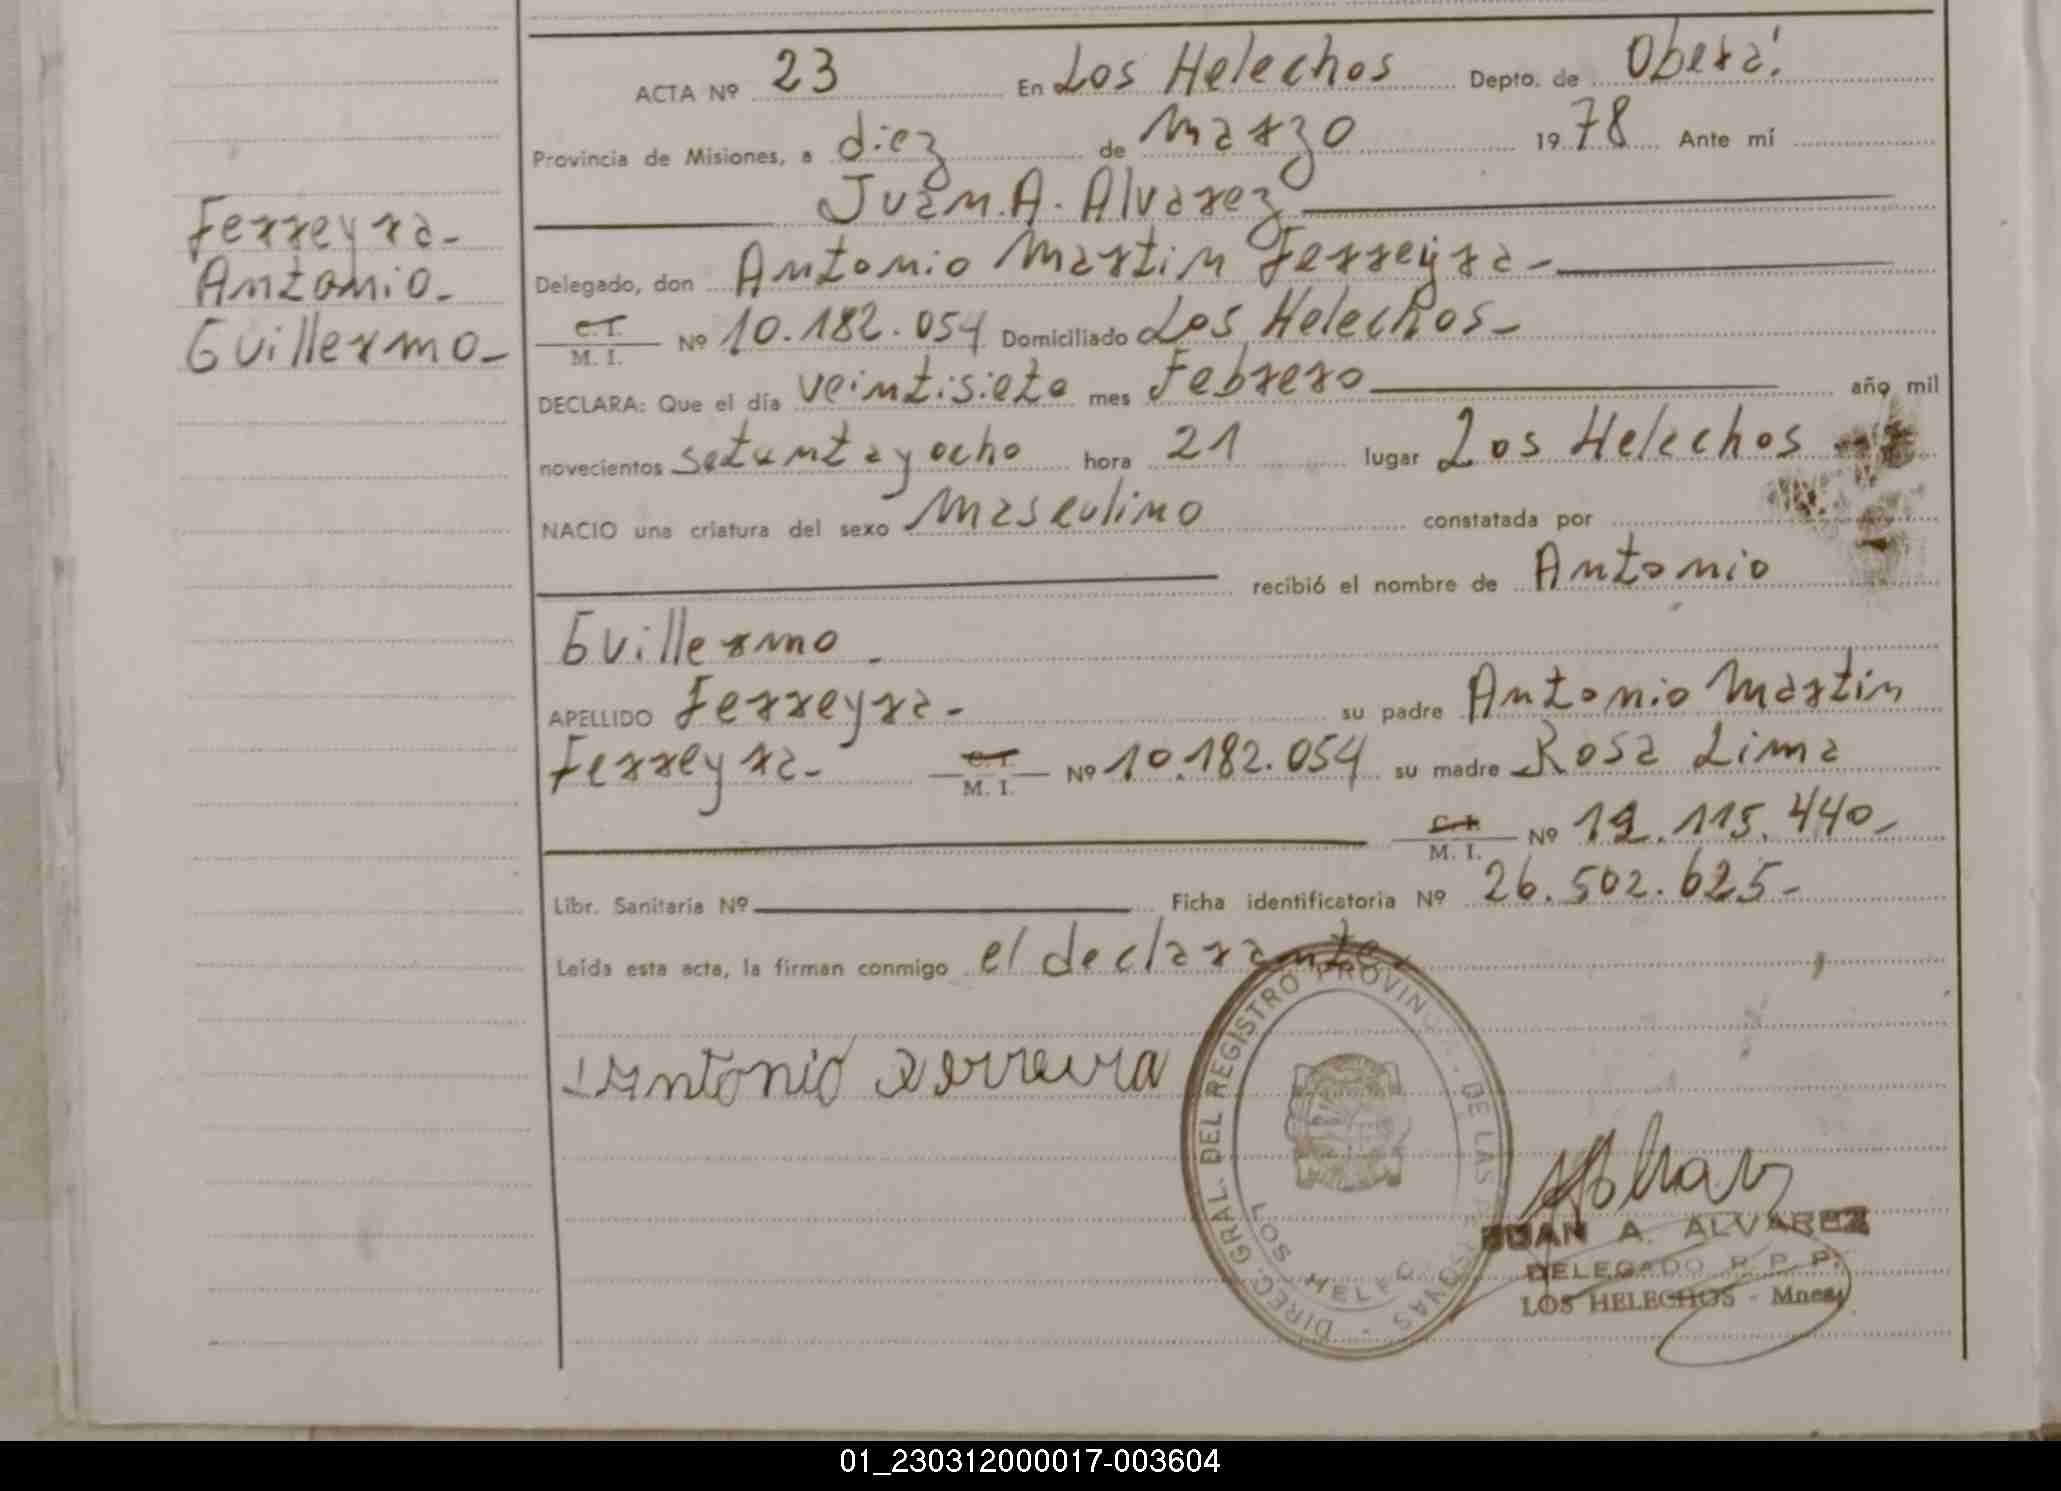 ACTA Nº 23 En Los Helechos Depto. de Oberá.
Provincia de Misiones, a diez de Marzo 1978 Ante mí
Juan. A. Alvarez
Ferreyra-
Antonio-
Guillermo-
Delegado, don Antonio Martin Ferreyra-
C.I.
M. I. Nº 10.182.054 Domiciliado Los Helechos-
DECLARA: Que el día veintisiete mes Febrero año mil
novecientos setenta y ocho hora 21 lugar Los Helechos
NACIO una criatura del sexo Masculino constatada por
recibió el nombre de Antonio
Guillermo-
APELLIDO Ferreyra- su padre Antonio Martin
Ferreyra- C.I. M. I. Nº 10.182.054 su madre Rosa Lima
C.I. M. I. Nº .115.440-
Libr. Sanitaria Nº Ficha identificatoria Nº 26.502.625-
Leída esta acta, la firman conmigo el declarante
Antonio Ferreira
DIREC. GRAL. DEL REGISTRO PROVIN DE LAS PERSONAS
LOS HELEC
JUAN A. ALVAREZ
DELEGADO R. P. P.
LOS HELECHOS - Mnes.
01_230312000017-003604